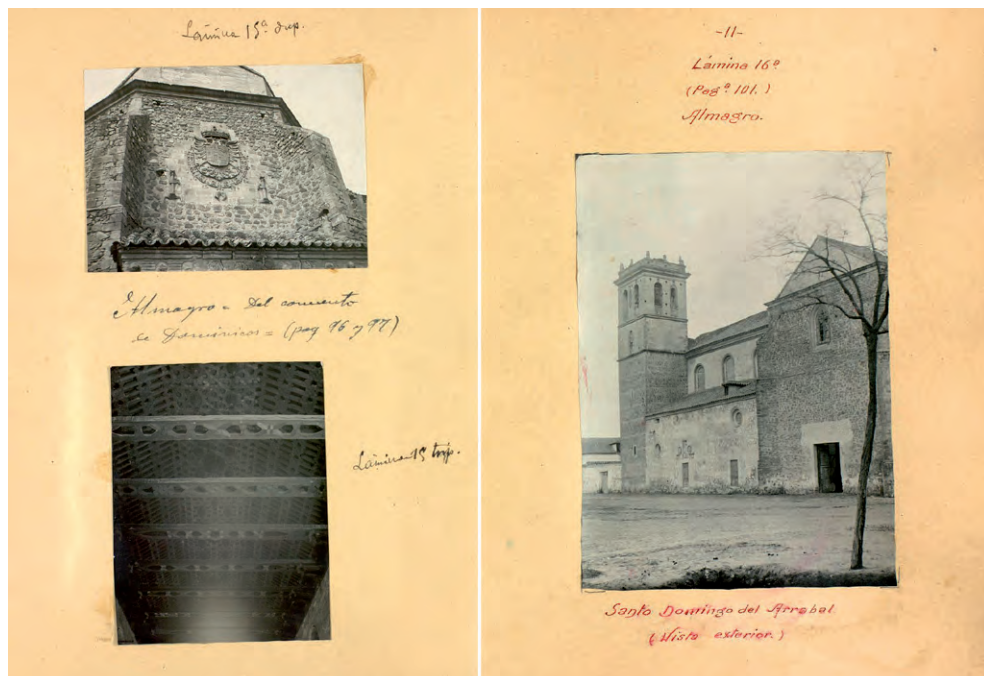 Lámina 15ª dup.
Almagro = Del convento
de Dominicos = (pag 96 y 97)
Lámina 15 trip.
-11-
Lámina 16ª
(Pagª. 101.)
Almagro.
Santo Domingo del Arrabal
(Vista exterior.)